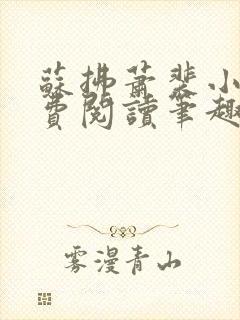 蘇拂蕭裴小
費閱讀筆趣
雾漫青山